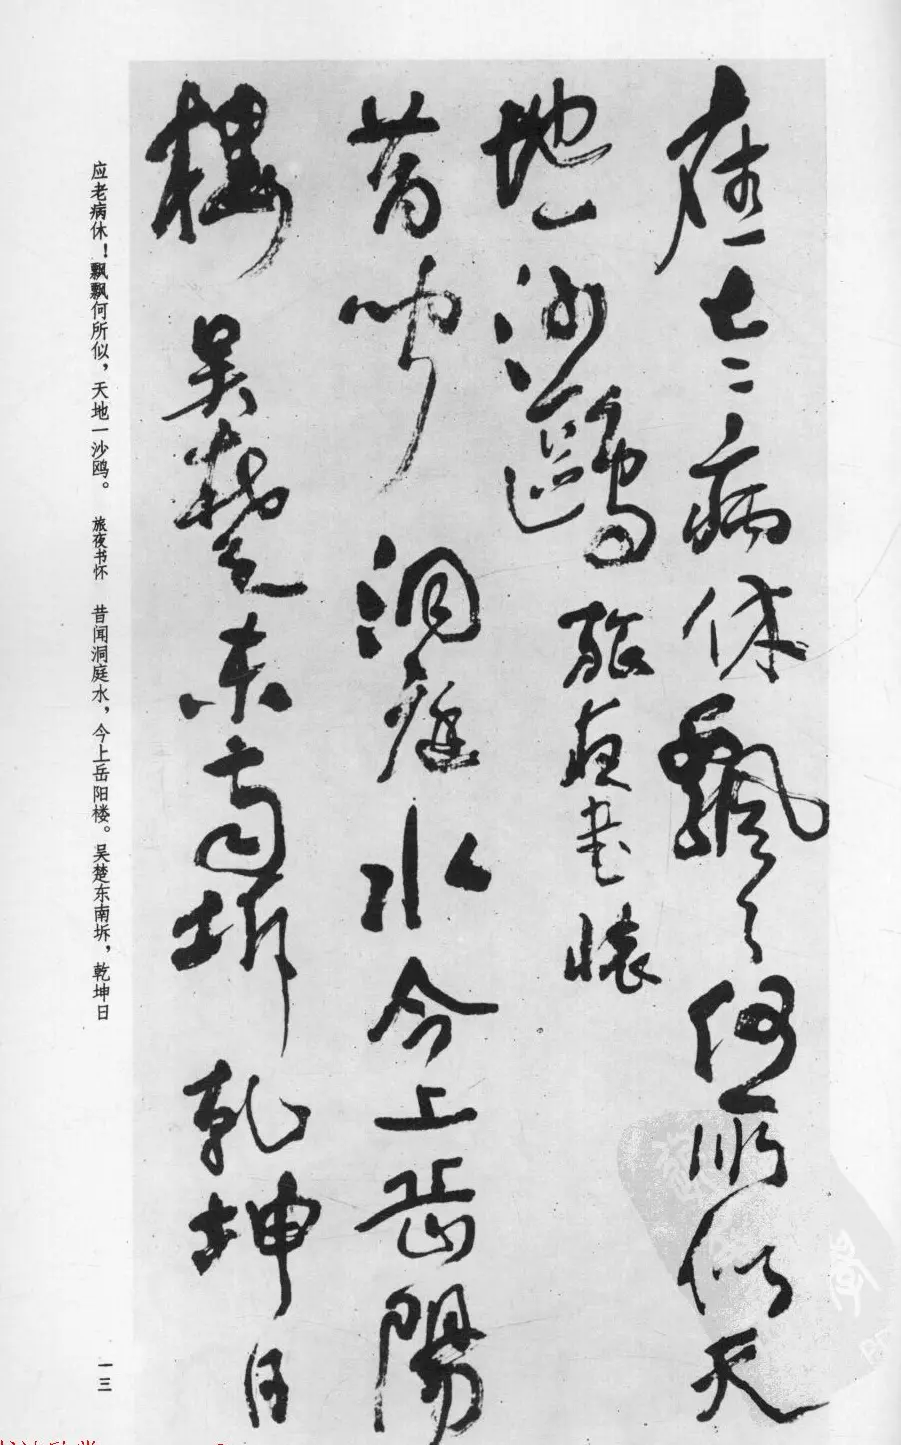 應老病休飄飄何所似天
地一沙鷗
旅夜書懷
昔聞洞庭水今上岳陽
樓吳楚東南坼乾坤日
应老病休！飘飘何所似，天地一沙鸥。 旅夜书怀 昔闻洞庭水，今上岳阳楼。吴楚东南坼，乾坤日
一三